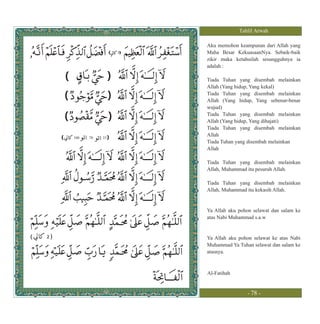 Tahlil Arwah
أَسْتَغْفِرُ اللهَ الْعَظِيْمَ (٣ كالي) أَفْضَلُ الذِّكْرِ فَاعْلَمْ أَنَّهُ
لَآ إِلَـٰهَ إِلَّا اللهُ (حَيٌّ بَاقٍ)
لَآ إِلَـٰهَ إِلَّا اللهُ (حَيٌّ مَوْجُوْدٌ)
لَآ إِلَـٰهَ إِلَّا اللهُ (حَيٌّ مَقْصُوْدٌ)
لَآ إِلَـٰهَ إِلَّا اللهُ
لَآ إِلَـٰهَ إِلَّا اللهُ لَآ إِلَـٰهَ إِلَّا اللهُ
لَآ إِلَـٰهَ إِلَّا اللهُ مُحَمَّدٌ رَّسُوْلُ اللهِ
لَآ إِلَـٰهَ إِلَّا اللهُ مُحَمَّدٌ حَبِيْبُ اللهِ
اَللّٰهُمَّ صَلِّ عَلَىٰ مُحَمَّدٍ اَللّٰهُمَّ صَلِّ عَلَيْهِ وَسَلِّمْ
(٢ كالي)
اَللّٰهُمَّ صَلِّ عَلَىٰ مُحَمَّدٍ يَا رَبِّ صَلِّ عَلَيْهِ وَسَلِّمْ
اَلْفَاتِحَةَ
Aku memohon keampunan dari Allah yang
Maha Besar KekuasaanNya. Sebaik-baik
zikir maka ketahuilah sesungguhnya ia
adalah :
Tiada Tuhan yang disembah melainkan
Allah (Yang hidup, Yang kekal)
Tiada Tuhan yang disembah melainkan
Allah (Yang hidup, Yang sebenar-benar
wujud)
Tiada Tuhan yang disembah melainkan
Allah (Yang hidup, Yang dihajati)
Tiada Tuhan yang disembah melainkan
Allah
Tiada Tuhan yang disembah melainkan
Allah
Tiada Tuhan yang disembah melainkan
Allah, Muhammad itu pesuruh Allah.
Tiada Tuhan yang disembah melainkan
Allah, Muhammad itu kekasih Allah.
Ya Allah aku pohon selawat dan salam ke
atas Nabi Muhammad s.a.w
Ya Allah aku pohon selawat ke atas Nabi
Muhammad Ya Tuhan selawat dan salam ke
atasnya.
Al-Fatihah
- 78 -